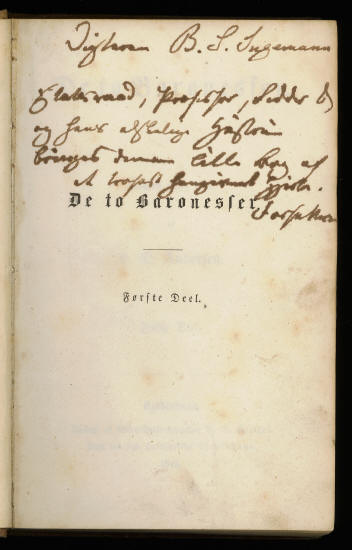 Digteren B. S. Ingemann
Etatsraad, Professor, Ridder &
og hans elskelige Hustru
bringes denne lille bog af
et trofast hengivent Hjerte.
Forfatteren
De to Baronesser
Første Deel.